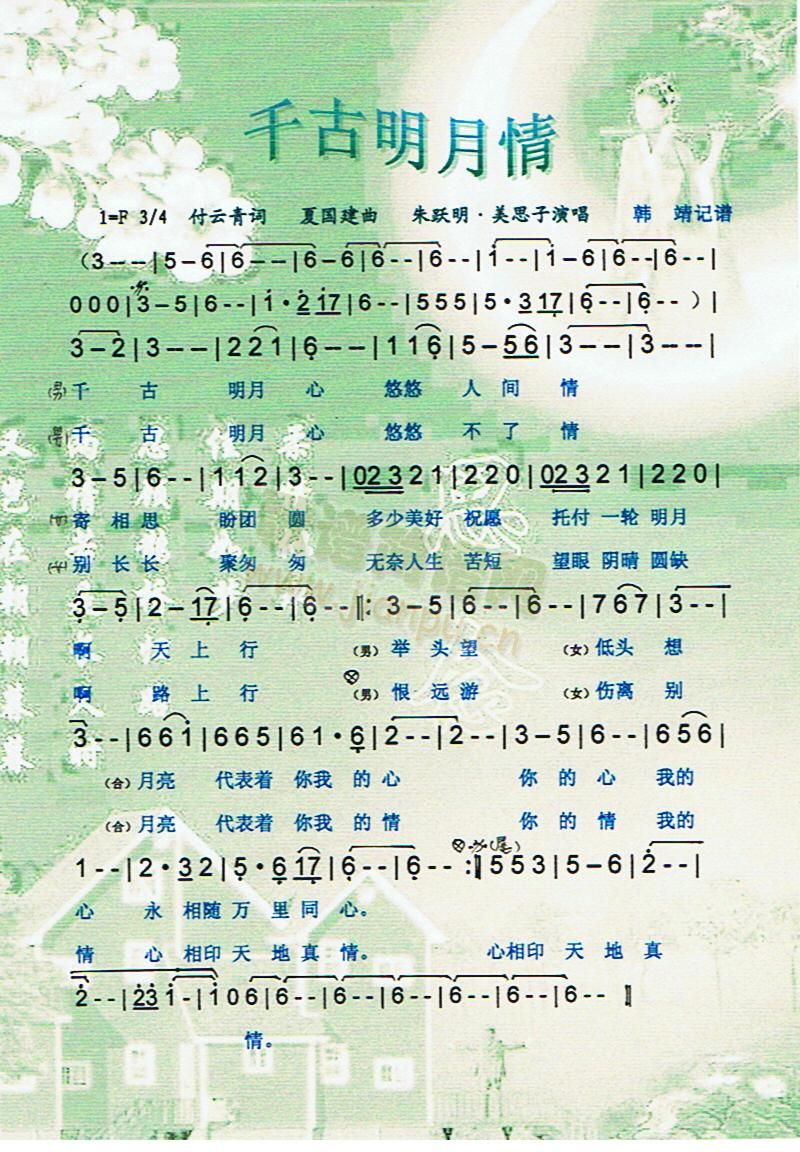 千古明月情
1=F 3/4 付云青词 夏国建曲 朱跃明·美思子演唱 韩 靖记谱
(3--|5-6|6--|6-6|6--|6--|i--|i-6|6--|6--|
000|3-5|6--|i·2i7|6--|555|5·317|6--|6--)|
3-2|3--|221|6--|116|5-56|3--|3--|
(男)千 古 明月 心 悠悠 人 间 情
千 古 明月 心 悠悠 不 了 情
3-5|6--|112|3--|023 21|220|023 21|220|
寄 相思 盼团 圆 多少美好 祝愿 托付 一轮 明月
(女)别 长长 聚匆 匆 无奈人生 苦短 望眼 阴晴 圆缺
3-5|2-17|6--|6--‖:3-5|6--|767|3--|
啊 天 上 行 (男)举 头 望 (女)低头 想
啊 路 上 行 (男)恨 远 游 (女)伤离 别
3--|66i|665|61·6|2--|2--|3-5|6--|656|
(合)月亮 代表着 你我 的 心 你 的 心 我的
(合)月亮 代表着 你我 的 情 你 的 情 我的
1--|2·32|5·617|6--|6--:‖553|5-6|2--|
心 永 相随 万 里 同 心。
情 心 相印 天 地 真 情。 心相印 天 地 真
2--|23i-|i06|6--|6--|6--|6--|6--‖
情。